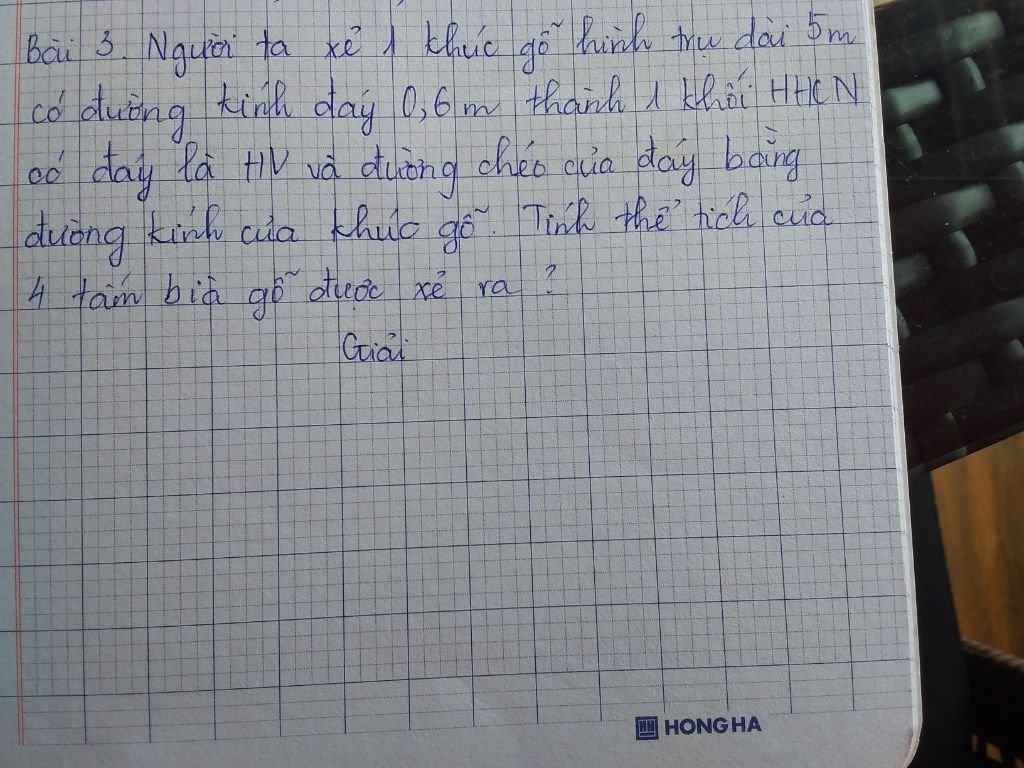 Bài 3. Người ta xẻ 1 khúc gỗ hình trụ dài 5m
có đường kính đáy 0,6m thành 1 khối HHCN
có đáy là HV và đường chéo của đáy bằng
đường kính của khúc gỗ. Tính thể tích của
4 tấm bìa gỗ được xẻ ra ?
Giải
HH HONG HA